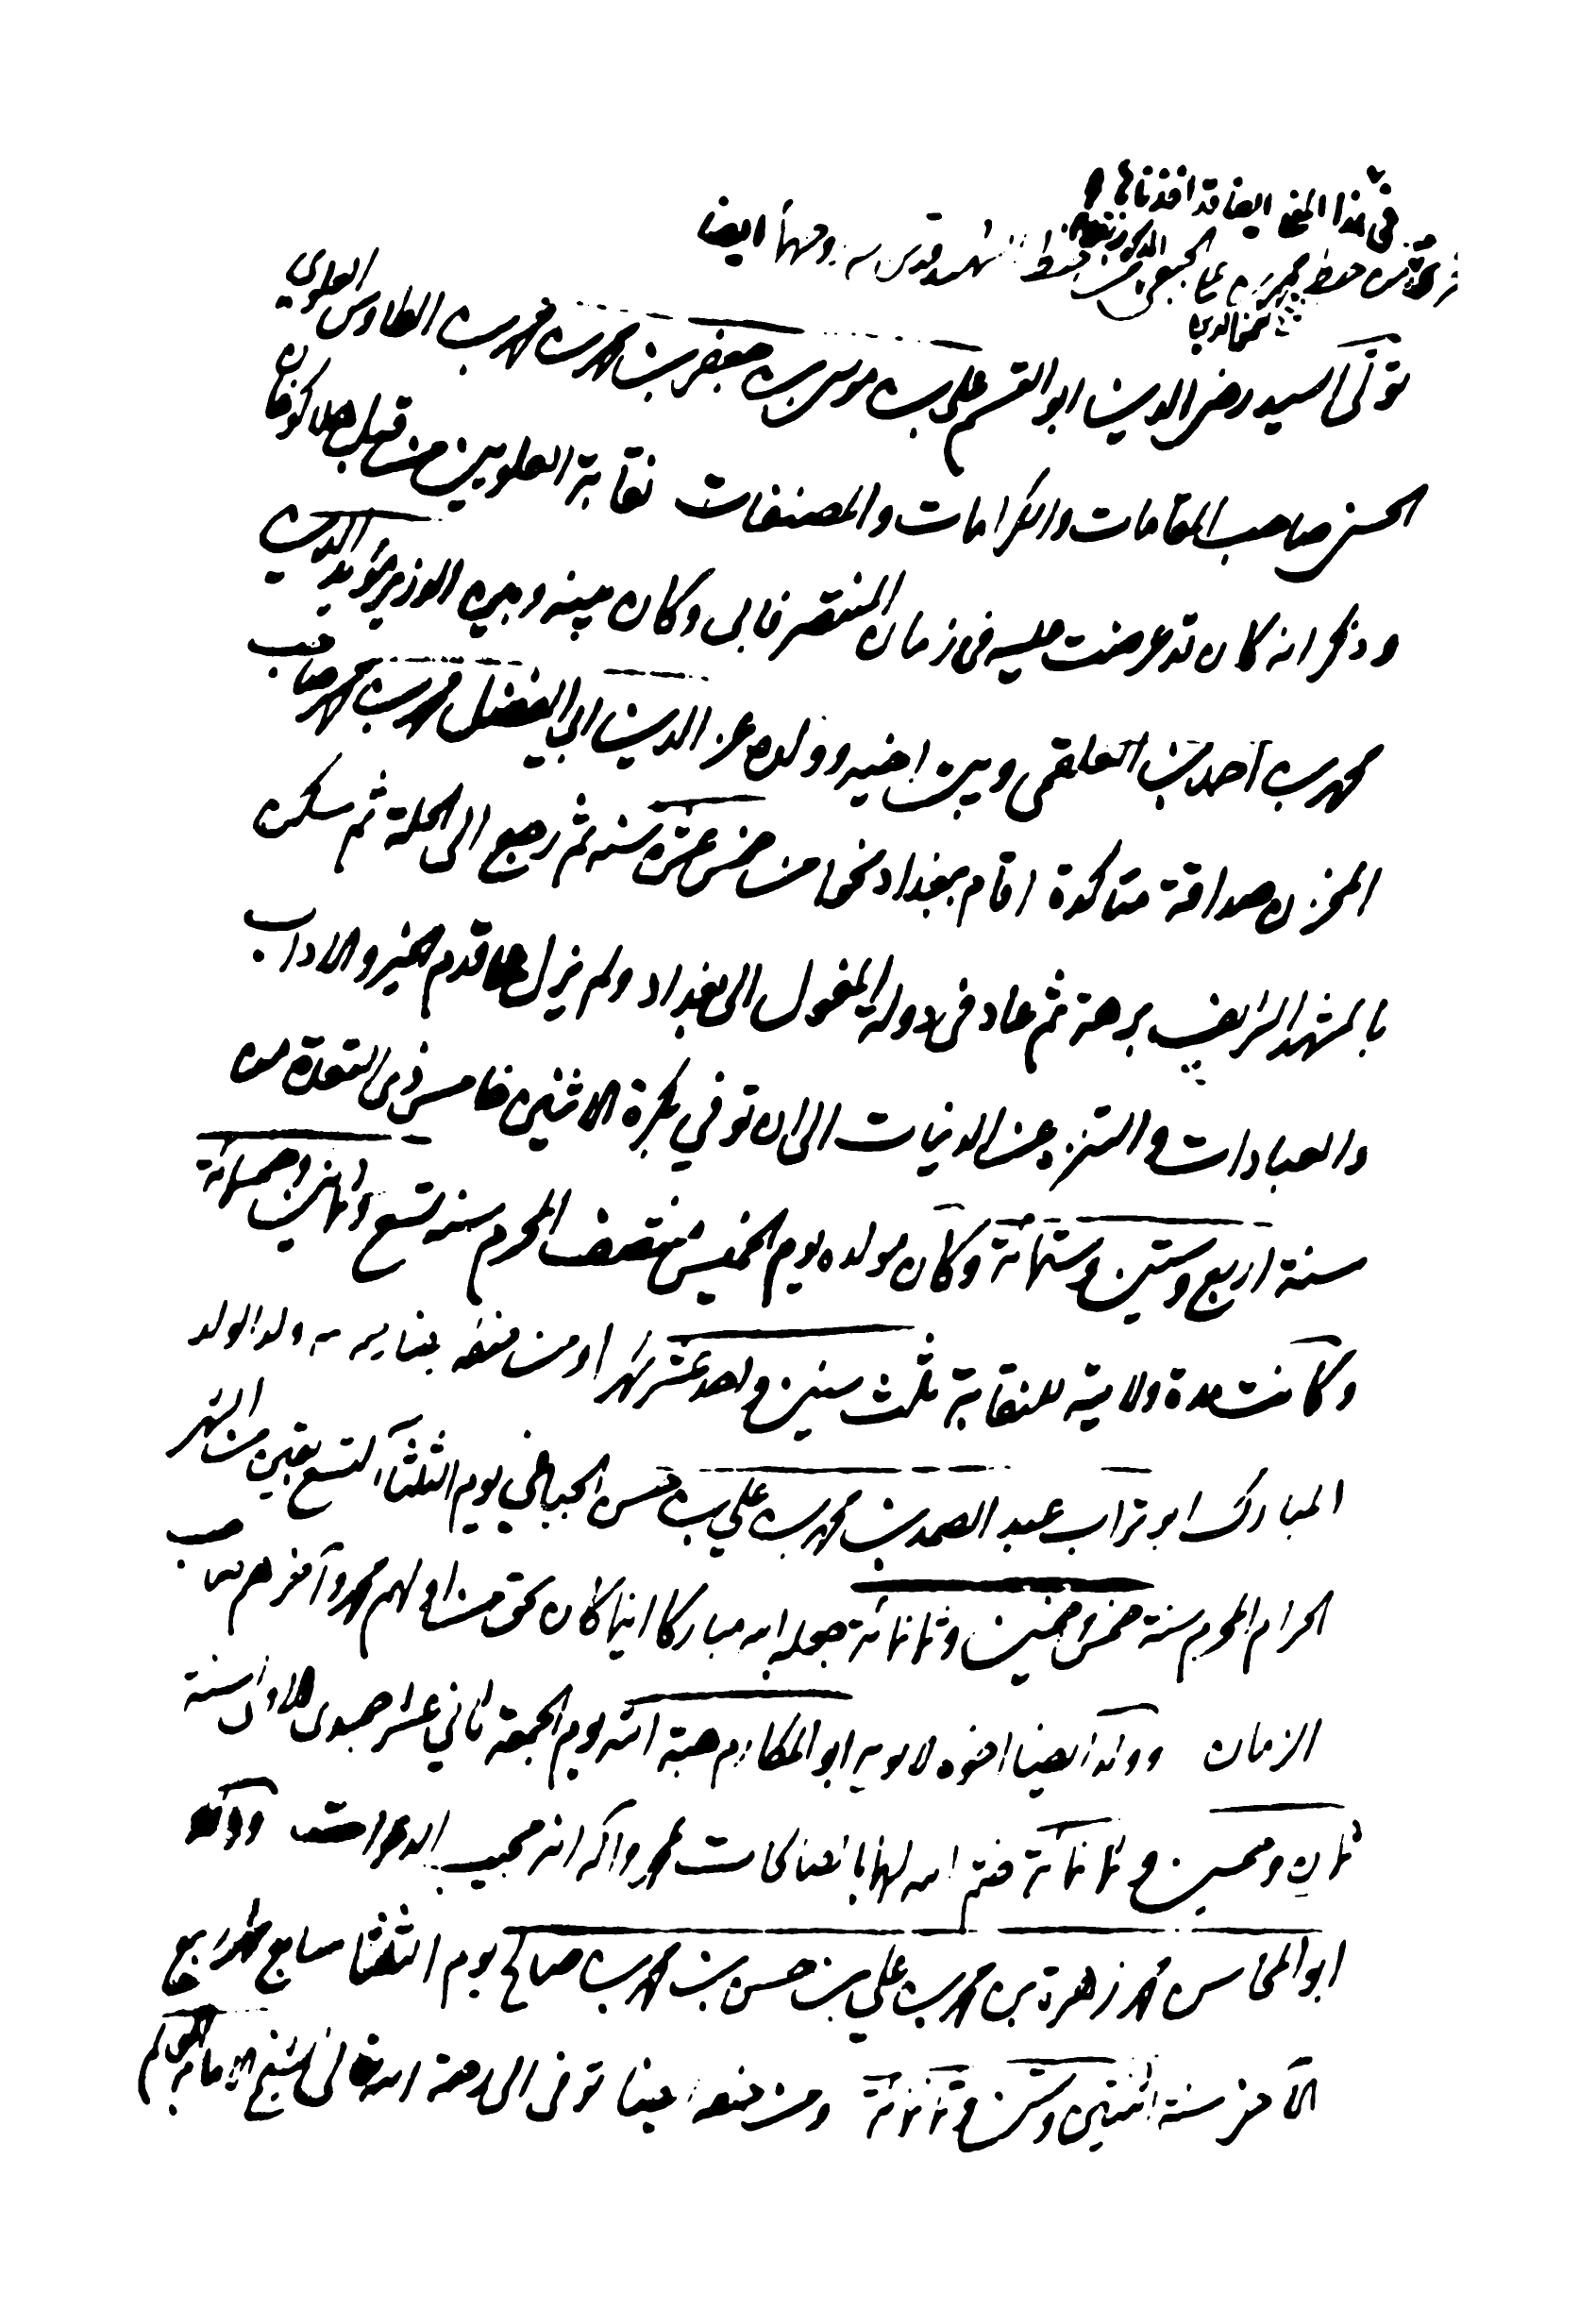 في هذا المعنى ايضا قد افدناها
من خط محمد بن علي الجبعي من خط الشهيد قدس سره ومنها أيضا
تولى السيد رضي الدين ابو القسم علي بن موسى بن جعفر بن محمد بن محمد بن الطاوس العلوي
الحسني صاحب المقامات والكرامات والمصنفات نقابة العلويين من قبل هلاكو خان
وذكر انه كان قد عرضت عليه في زمان المستنصر فابى وكان بينه وبين الوزير مؤيد الدين
محمد بن احمد بن العلقمي وبين اخيه وولده عز الدين ابي الفضل محمد بن محمد صاحب
المخزن صداقة متاكدة اقام ببغداد نحوا من خمس عشرة سنه ثم رجع الى الحلة ثم سكن
بالمشهد الشريف برهة ثم عاد في دولة المغول الى بغداد ولم يزل على قدم الخير والاداب
والعبادات والتنزه عن الدنيات الى ان توفي بكرة الاثنين خامس ذي القعدة من
سنة اربع وستين وستمائة وكان مولده يوم الخميس منتصف المحرم سنة تسع وثمانين وخمسمائة
وكانت مدة ولايته للنقابة ثلث سنين واحد عشر شهرا ومن خطه ايضا ولد الولد
المبارك ابو تراب عبد الصمد بن محمد بن علي بن حسن الجباعي يوم الثلثاء لتسع بقين من الشهر
الحرام المحرم سنة خمس وخمسين وثمانمائة جعله الله مباركا اينما كان بحق من اولهم محمد وآخرهم صاحب
الزمان وولد ايضا اخوه لابويه ابو المكارم هبة الله يوم الجمعة ثاني عشر جمدى الاول سنة
ثمان وخمسين وثمانمائة ختم الله لهما بالصالحات بمحمد واله انه مجيب الدعوات وولد
ابو المحاسن محمد زهرة بن محمد بن علي بن حسن بن محمد بن صالح يوم الثلثا سابع شهر ربيع
الآخر سنة اثنين وستين وثمانمائة ومن خطه ايضا توفي الى رحمة الله تعالى الشيخ الامام العالم